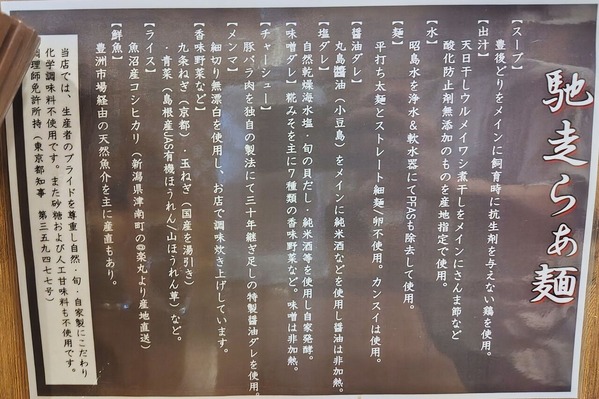 馳走らぁ麺
【スープ】
豊後どりをメインに飼育時に抗生剤を与えない鶏を使用。
【出汁】
天日干しウルメイワシ煮干しをメインにさんま節など
酸化防止剤無添加のものを産地指定で使用。
【水】
昭島水を浄水&軟水器にてPFASも除去して使用。
【麺】
平打ち太麺とストレート細麺、卵不使用。カンスイは使用。
【醤油ダレ】
丸島醬油(小豆島)をメインに純米酒などを使用し醤油は非加熱。
【塩ダレ】
自然乾燥海水塩・旬の貝だし・純米酒等を使用し自家発酵。
【味噌ダレ】糀みそを主に7種類の香味野菜など。味噌は非加熱。
【チャーシュー】
豚バラ肉を独自の製法にて三十年継ぎ足しの特製醤油ダレを使用。
【メンマ】
細切り無漂白を使用し、お店で調味炊き上げしています。
【香味野菜など】
九条ねぎ(京都)・玉ねぎ(国産を湯引き)
・青菜(島根産JAS有機ほうれん/山ほうれん草)など。
【ライス】
魚沼産コシヒカリ(新潟県津南町の@楽丸より産地直送)
【鮮魚】
豊洲市場経由の天然魚介を主に産直もあり。
当店では、生産者のプライドを尊重し自然・旬・自家製にこだわり
化学調味料不使用です。また砂糖および人工甘味料も不使用です。
調理師免許所持(東京都知事 第三五九四七七号)